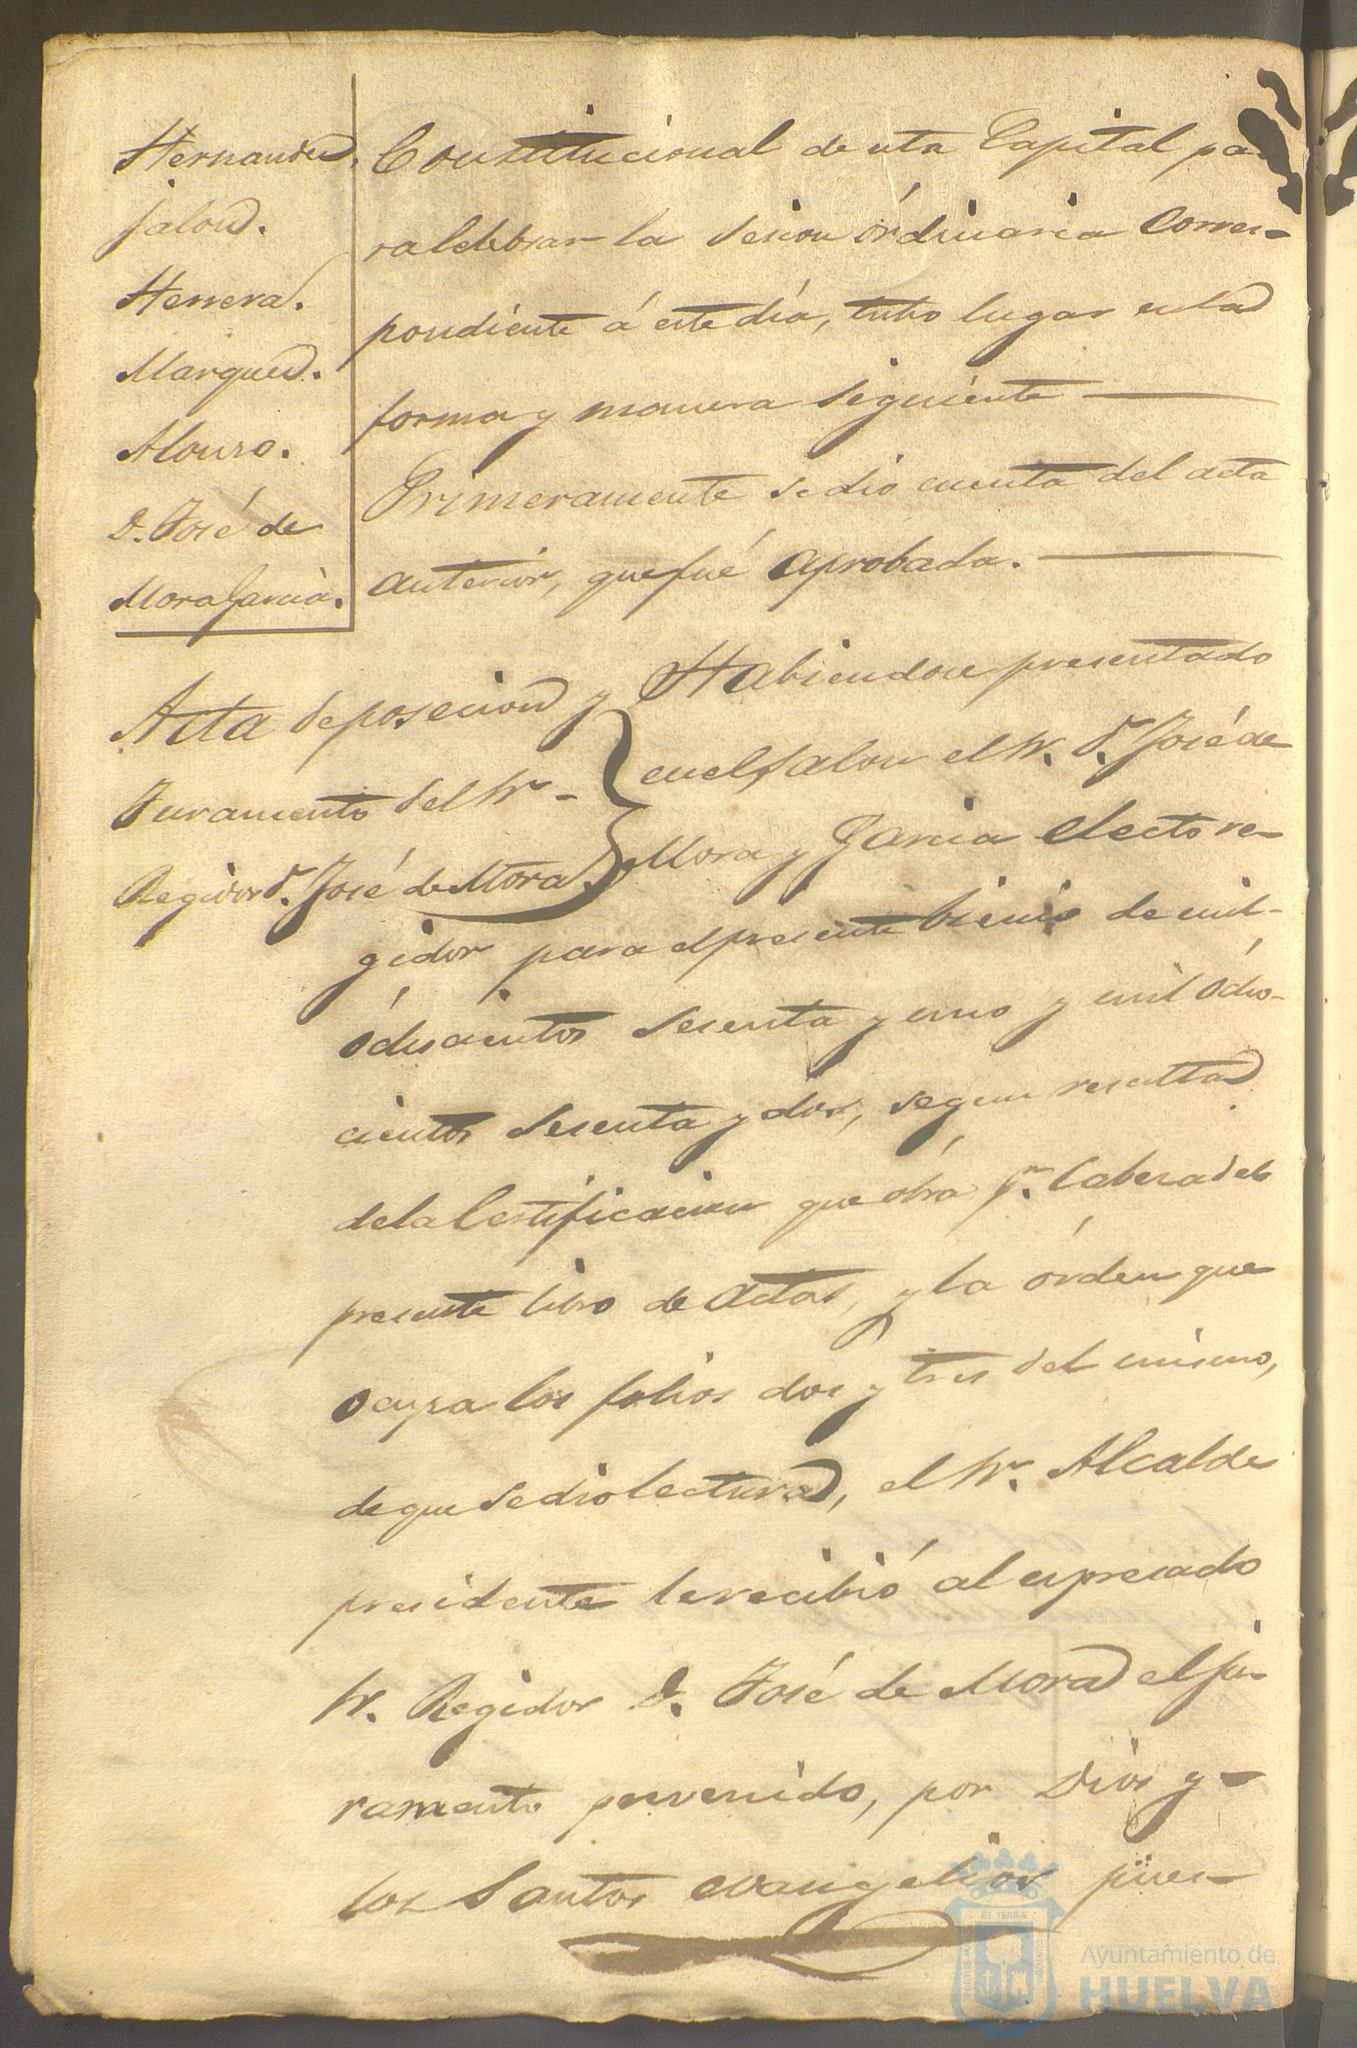 Hernandez.
Jalon.
Herrera.
Marquez.
Alonso.
D. José de
Mora Garcia.
Constitucional de esta Capital pa-
ra celebrar la sesion órdinaria Corres-
pondiente á este dia, tubo lugar en la
forma y manera siguiente
Primeramente se dio cuenta del acta
anterior, que fué aprobada.
Acta de posecion y
Juramento del Sr
Regidor Dn. José de Mora.
Habiendose presentado
en el Salon el Sr. Dn. José de
Mora y Garcia electo re-
gidor para el presente bienio de mil
óchocientos sesenta y uno y mil ócho-
cientos sesenta y dos, segun resulta
de la Certificacion que obra pr. Cabeza del
presente libro de actas, y la órden que
ocupa los folios dos y tres del mismo,
de que se dio lectura, el Sr. Alcalde
presidente le recibió al espresado
Sr. Regidor D. José de Mora el ju-
ramento prevenido, por Dios y
los Santos evangelios pues-
Ayuntamiento de
HUELVA